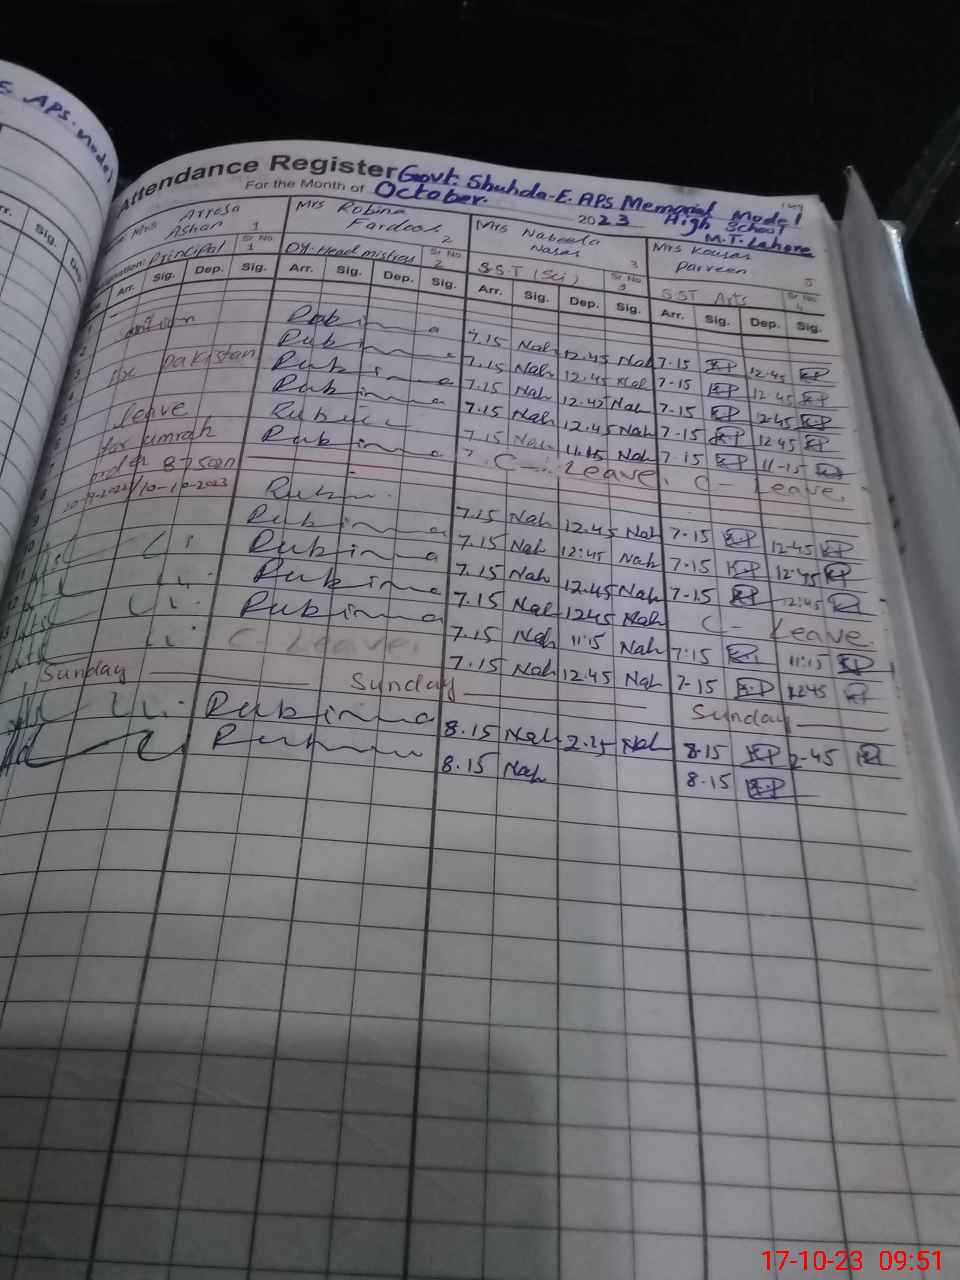 E. APS. Model
Attendance Register Govt. Shuhda-E. APS Memorial Model
For the Month of October. 2023 High School
M.T. Lahore
Mrs
Ashan 1
Principal Sr No. 1
Mrs Robina
Fardoos 2
Dy. Head mistress Sr No. 2
Mrs Nabeela
Nasar 3
S.S.T (Sci) Sr No. 3
Mrs Kousar
Parveen 5
SST Arts Sr No. 4
Arr. Sig. Dep. Sig. Arr. Sig. Dep. Sig. Arr. Sig. Dep. Sig. Arr. Sig. Dep. Sig.
Rubina 7.15 Nah 12.45 Nah 7-15 KP 12-45 KP
Rubina 7.15 Nah 12.45 Nah 7-15 KP 12 45 KP
Pakistan Rubina 7.15 Nah 12.45 Nah 7-15 KP 12 45 KP
Rubina 7.15 Nah 12.45 Nah 7-15 KP 12 45 KP
leave Rubina 7.15 Nah 11.15 Nah 7-15 KP 11-15 KP
for umrah Rubina C-Leave. C- Leave.
order
10-10-2023
Rubina 7.15 Nah 12.45 Nah 7-15 KP 12-45 KP
Rubina 7.15 Nah 12:45 Nah 7-15 KP 12-45 KP
Rubina 7.15 Nah 12.45 Nah 7-15 KP 12:45 KP
Rubina 7.15 Nah 12 45 Nah C- Leave.
Rubina 7.15 Nah 11:15 Nah 7:15 KP 11:15 KP
C- Leave. 7.15 Nah 12.45 Nah 7-15 KP 12 45 KP
Sunday Sunday Sunday
Rubina 8.15 Nah 2.45 Nah 8-15 KP 2-45 KP
Rubina 8.15 Nah 8-15 KP
17-10-23 09:51